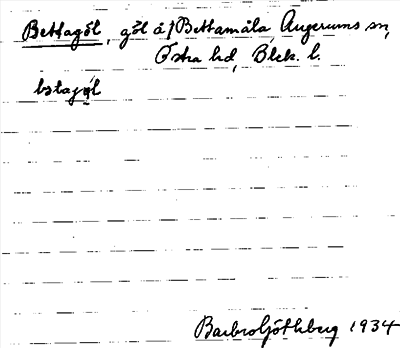 Bettagöl, göl å Bettamåla, Augerums sn,
Östra hd, Blek. l.
Barbro Göthberg 1934